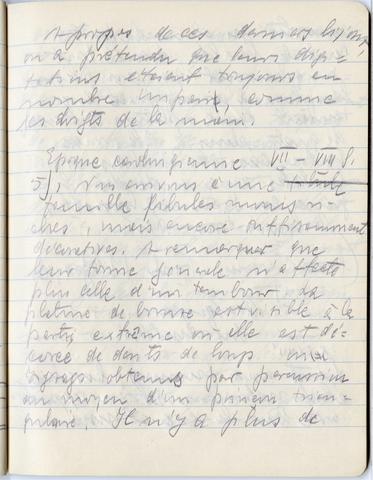 A propos de ces derniers bijoux,
on a prétendu que leurs digi-
tations étaient toujours en
nombre impair, comme
les doigts de la main.
Epoque carolingienne VII - VIII S.
5), nous arrivons à une
famille fibules moins ri-
ches, mais encore suffisamment
décoratives. A remarquer que
leur forme générale n'affecte
plus celle d'un tambour. La
platine de bronze est visible à la
partie extrême où elle est dé-
corée de dents de loups
zigzags obtenus par percussion
au moyen d'un poinçon trian-
gulaire. Il n'y a plus de